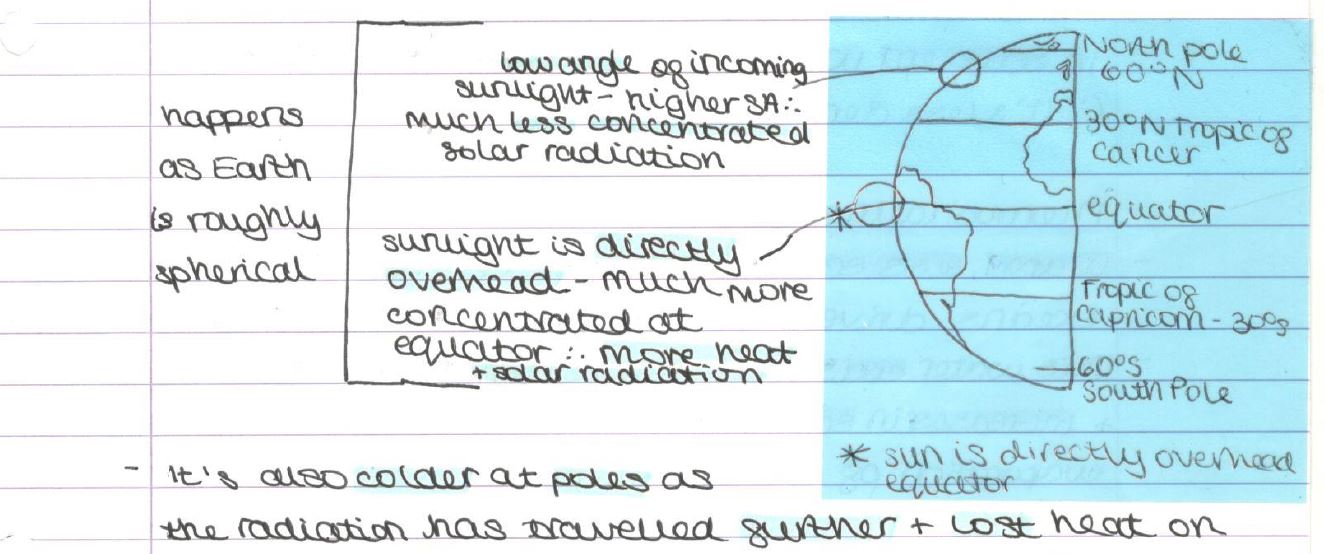 happens
as Earth
is roughly
spherical
low angle of incoming
sunlight - higher SA ∴
much less concentrated
solar radiation
sunlight is directly
overhead - much more
concentrated at
equator ∴ more heat
+ solar radiation
North pole
60°N
30°N Tropic of
cancer
equator
Tropic of
capricorn - 30°s
60°S
South Pole
* sun is directly overhead
equator
- It's also colder at poles as
the radiation has travelled further + lost heat on